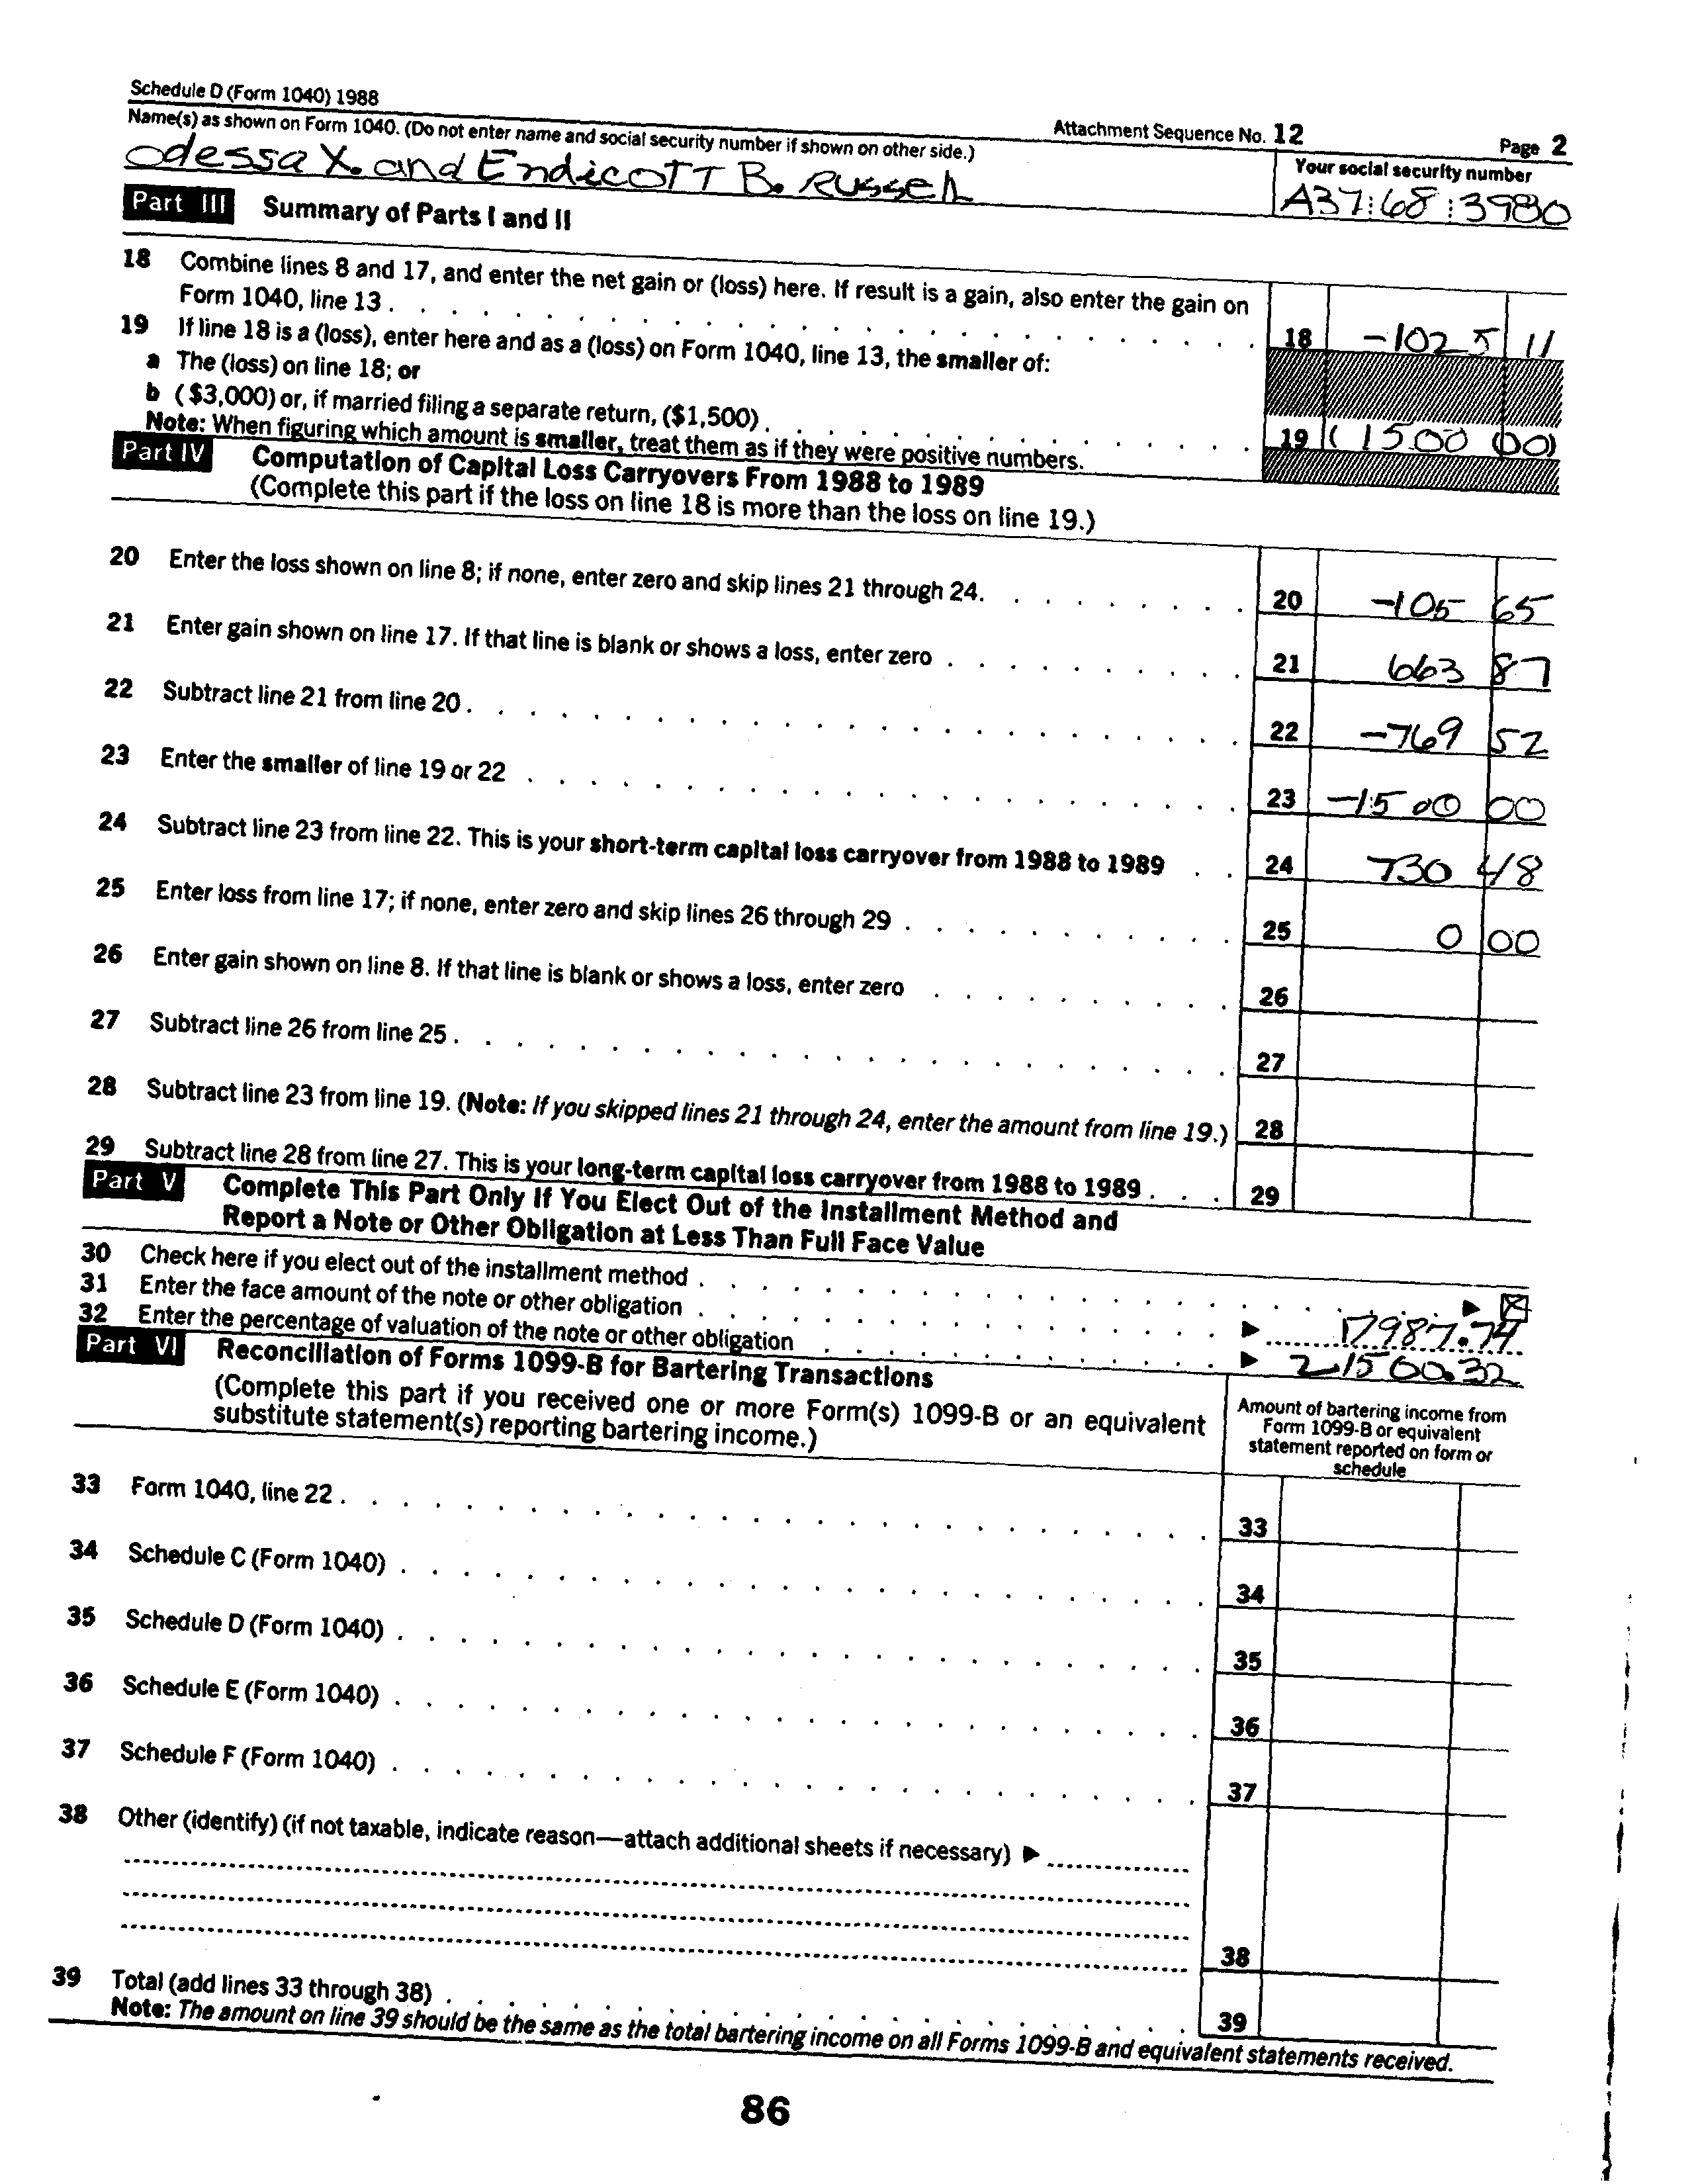 Schedule D (Form 1040) 1988 Attachment Sequence No. 12 Page 2
Name(s) as shown on Form 1040. (Do not enter name and social security number if shown on other side.) Your social security number
Odessa X. and Endicott B. Russell A37:68:3980
Part III Summary of Parts I and II
18 Combine lines 8 and 17, and enter the net gain or (loss) here. If result is a gain, also enter the gain on
Form 1040, line 13 . . . 18 -1025 11
19 If line 18 is a (loss), enter here and as a (loss) on Form 1040, line 13, the smaller of:
a The (loss) on line 18; or
b ($3,000) or, if married filing a separate return, ($1,500) . . . 19 (1500 00)
Note: When figuring which amount is smaller, treat them as if they were positive numbers.
Part IV Computation of Capital Loss Carryovers From 1988 to 1989
(Complete this part if the loss on line 18 is more than the loss on line 19.)
20 Enter the loss shown on line 8; if none, enter zero and skip lines 21 through 24. . . . 20 -105 65
21 Enter gain shown on line 17. If that line is blank or shows a loss, enter zero . . . 21 663 87
22 Subtract line 21 from line 20 . . . 22 -769 52
23 Enter the smaller of line 19 or 22 . . . 23 -1500 00
24 Subtract line 23 from line 22. This is your short-term capital loss carryover from 1988 to 1989 . . 24 730 48
25 Enter loss from line 17; if none, enter zero and skip lines 26 through 29 . . . 25 0 00
26 Enter gain shown on line 8. If that line is blank or shows a loss, enter zero . . . 26
27 Subtract line 26 from line 25 . . . 27
28 Subtract line 23 from line 19. (Note: If you skipped lines 21 through 24, enter the amount from line 19.) 28
29 Subtract line 28 from line 27. This is your long-term capital loss carryover from 1988 to 1989 . . . 29
Part V Complete This Part Only If You Elect Out of the Installment Method and
Report a Note or Other Obligation at Less Than Full Face Value
30 Check here if you elect out of the installment method . . . ▶ ☒
31 Enter the face amount of the note or other obligation . . . ▶ 17987.74
32 Enter the percentage of valuation of the note or other obligation . . . ▶ 21560.32
Part VI Reconciliation of Forms 1099-B for Bartering Transactions
(Complete this part if you received one or more Form(s) 1099-B or an equivalent
substitute statement(s) reporting bartering income.)
Amount of bartering income from
Form 1099-B or equivalent
statement reported on form or
schedule
33 Form 1040, line 22 . . . 33
34 Schedule C (Form 1040) . . . 34
35 Schedule D (Form 1040) . . . 35
36 Schedule E (Form 1040) . . . 36
37 Schedule F (Form 1040) . . . 37
38 Other (identify) (if not taxable, indicate reason—attach additional sheets if necessary) ▶
38
39 Total (add lines 33 through 38) . . . 39
Note: The amount on line 39 should be the same as the total bartering income on all Forms 1099-B and equivalent statements received.
86